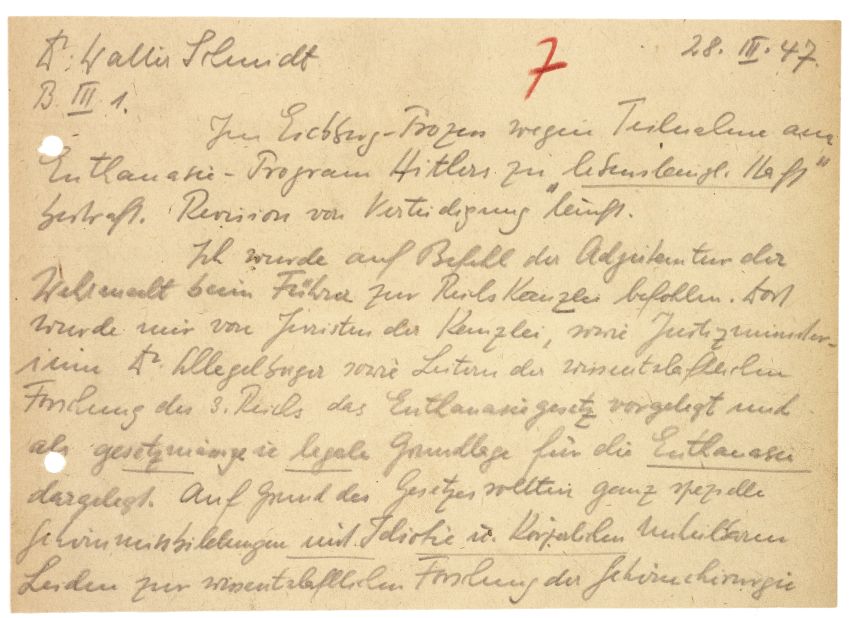 Dr. Walter Schmidt 7 28. III. 47.
B. III 1.
Im Eichberg-Prozess wegen Teilnahme am
Euthanasie-Program Hitlers zu "lebenslängl. Haft"
bestraft. Revision von Verteidigung läuft.
Ich wurde auf Befehl der Adjutantur der
Wehrmacht beim Führer zur Reichskanzlei befohlen. Dort
wurde mir von Juristen der Kanzlei, sowie Justizminister-
ium Dr. Schlegelberger sowie Leitern der wissentschaftlichen
Forschung des 3. Reichs das Euthanasiegesetz vorgelegt und
als gesetzmässige u. legale Grundlage für die Euthanasie
dargelegt. Auf Grund des Gesetzes sollten ganz spezielle
Gehirnmissbildungen mit Idiotie u. Körperlichen Unheilbaren
Leiden zur wissentschaftlichen Forschung der Gehirnchirurgie